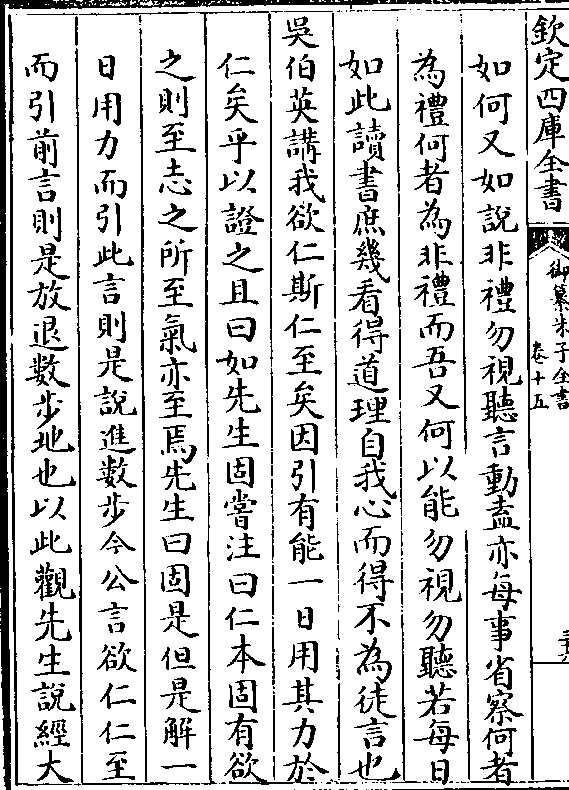 欽定四庫全書
御纂朱子全書
卷十五
如何又如說非禮勿視聽言動盍亦每事省察何者
為禮何者為非禮而吾又何以能勿視勿聽若每日
如此讀書庶幾看得道理自我心而得不為徒言也
吳伯英講我欲仁斯仁至矣因引有能一日用其力於
仁矣乎以證之且曰如先生固嘗注曰仁本固有欲
之則至志之所至氣亦至焉先生曰固是但是解一
日用力而引此言則是說進數步今公言欲仁仁至
而引前言則是放退數步地也以此觀先生說經大